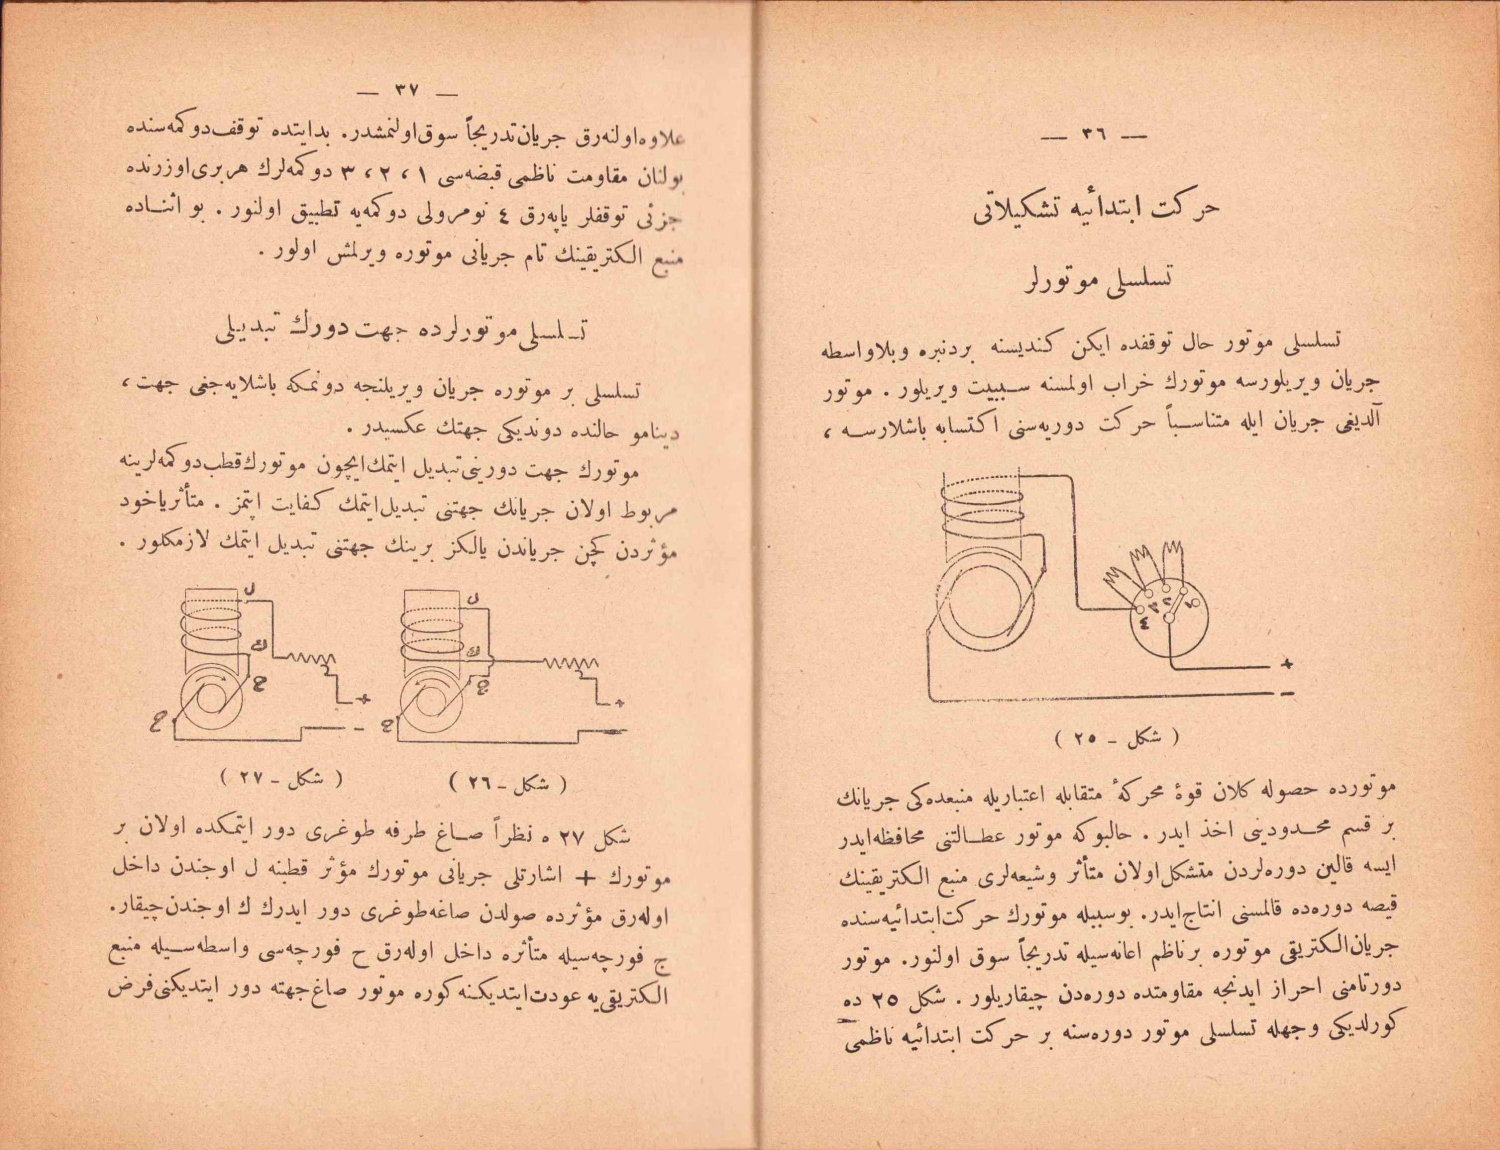 — ٣٦ —
حركت ابتدائيه تشكيلاتى
تسلسلى موتورلر
تسلسلى موتور حال توقفده ايكن كنديسنه بردنبره وبلاواسطه
جريان ويريلورسه موتورك خراب اولمسنه سببيت ويريلور . موتور
آلديغى جريان ايله متناسباً حركت دوريه‌سنى اكتسابه باشلارسه ،
١
٢
٣
٤
+
—
( شكل - ٢٥ )
موتورده حصوله كلان قوۀ محركۀ متقابله اعتباريله منبعده‌كى جريانك
بر قسم محدودينى اخذ ايدر . حالبوكه موتور عطالتنى محافظه‌ايدر
ايسه قالين دوره‌لردن متشكل‌اولان متأثر وشيعه‌لرى منبع الكتريقينك
قيصه دوره‌ده قالمسنى انتاج‌ايدر. بوسببله موتورك حركت‌ابتدائيه‌سنده
جريان‌الكتريقى موتوره برناظم اعانه‌سيله تدريجاً سوق اولنور. موتور
دورتامنى احراز ايدنجه مقاومتده دوره‌دن چيقاريلور . شكل ٢٥ ده
كورلديكى وجهله تسلسلى موتور دوره‌سنه بر حركت ابتدائيه ناظمى
— ٣٧ —
علاوه‌اولنه‌رق جريان‌تدريجاً سوق‌اولنمشدر. بدايتده توقف‌دوكمه‌سنده
بولنان مقاومت ناظمى قبضه‌سى ١ ، ٢ ، ٣ دوكمه‌لرك هربرى‌اوزرنده
جزئى توقفلر ياپه‌رق ٤ نومرولى دوكمه‌يه تطبيق اولنور . بو اثناده
منبع الكتريقينك تام جريانى موتوره ويرلمش اولور .
تسلسلى موتورلرده جهت دورك تبديلى
تسلسلى بر موتوره جريان ويريلنجه دونمكه باشلايه‌جغى جهت ،
دينامو حالنده دونديكى جهتك عكسيدر .
موتورك جهت دورينى‌تبديل ايتمك‌ايچون موتورك‌قطب‌دوكمه‌لرينه
مربوط اولان جريانك جهتنى تبديل‌ايتمك كفايت ايتمز . متأثرياخود
مؤثردن كچن جرياندن يالكز برينك جهتنى تبديل ايتمك لازمكلور .
ل
ك
ج
ح
+
—
ل
ك
ج
ح
+
—
( شكل - ٢٦ )
( شكل - ٢٧ )
شكل ٢٧ ه نظراً صاغ طرفه طوغرى دور ايتمكده اولان بر
موتورك + اشارتلى جريانى موتورك مؤثر قطبنه ل اوجندن داخل
اوله‌رق مؤثرده صولدن صاغه‌طوغرى دور ايدرك ك اوجندن‌چيقار.
ج فورچه‌سيله متأثره داخل اوله‌رق ح فورچه‌سى واسطه‌سيله منبع
الكتريقى‌يه عودت‌ايتديكنه‌كوره موتور صاغ‌جهته دور ايتديكنى‌فرض